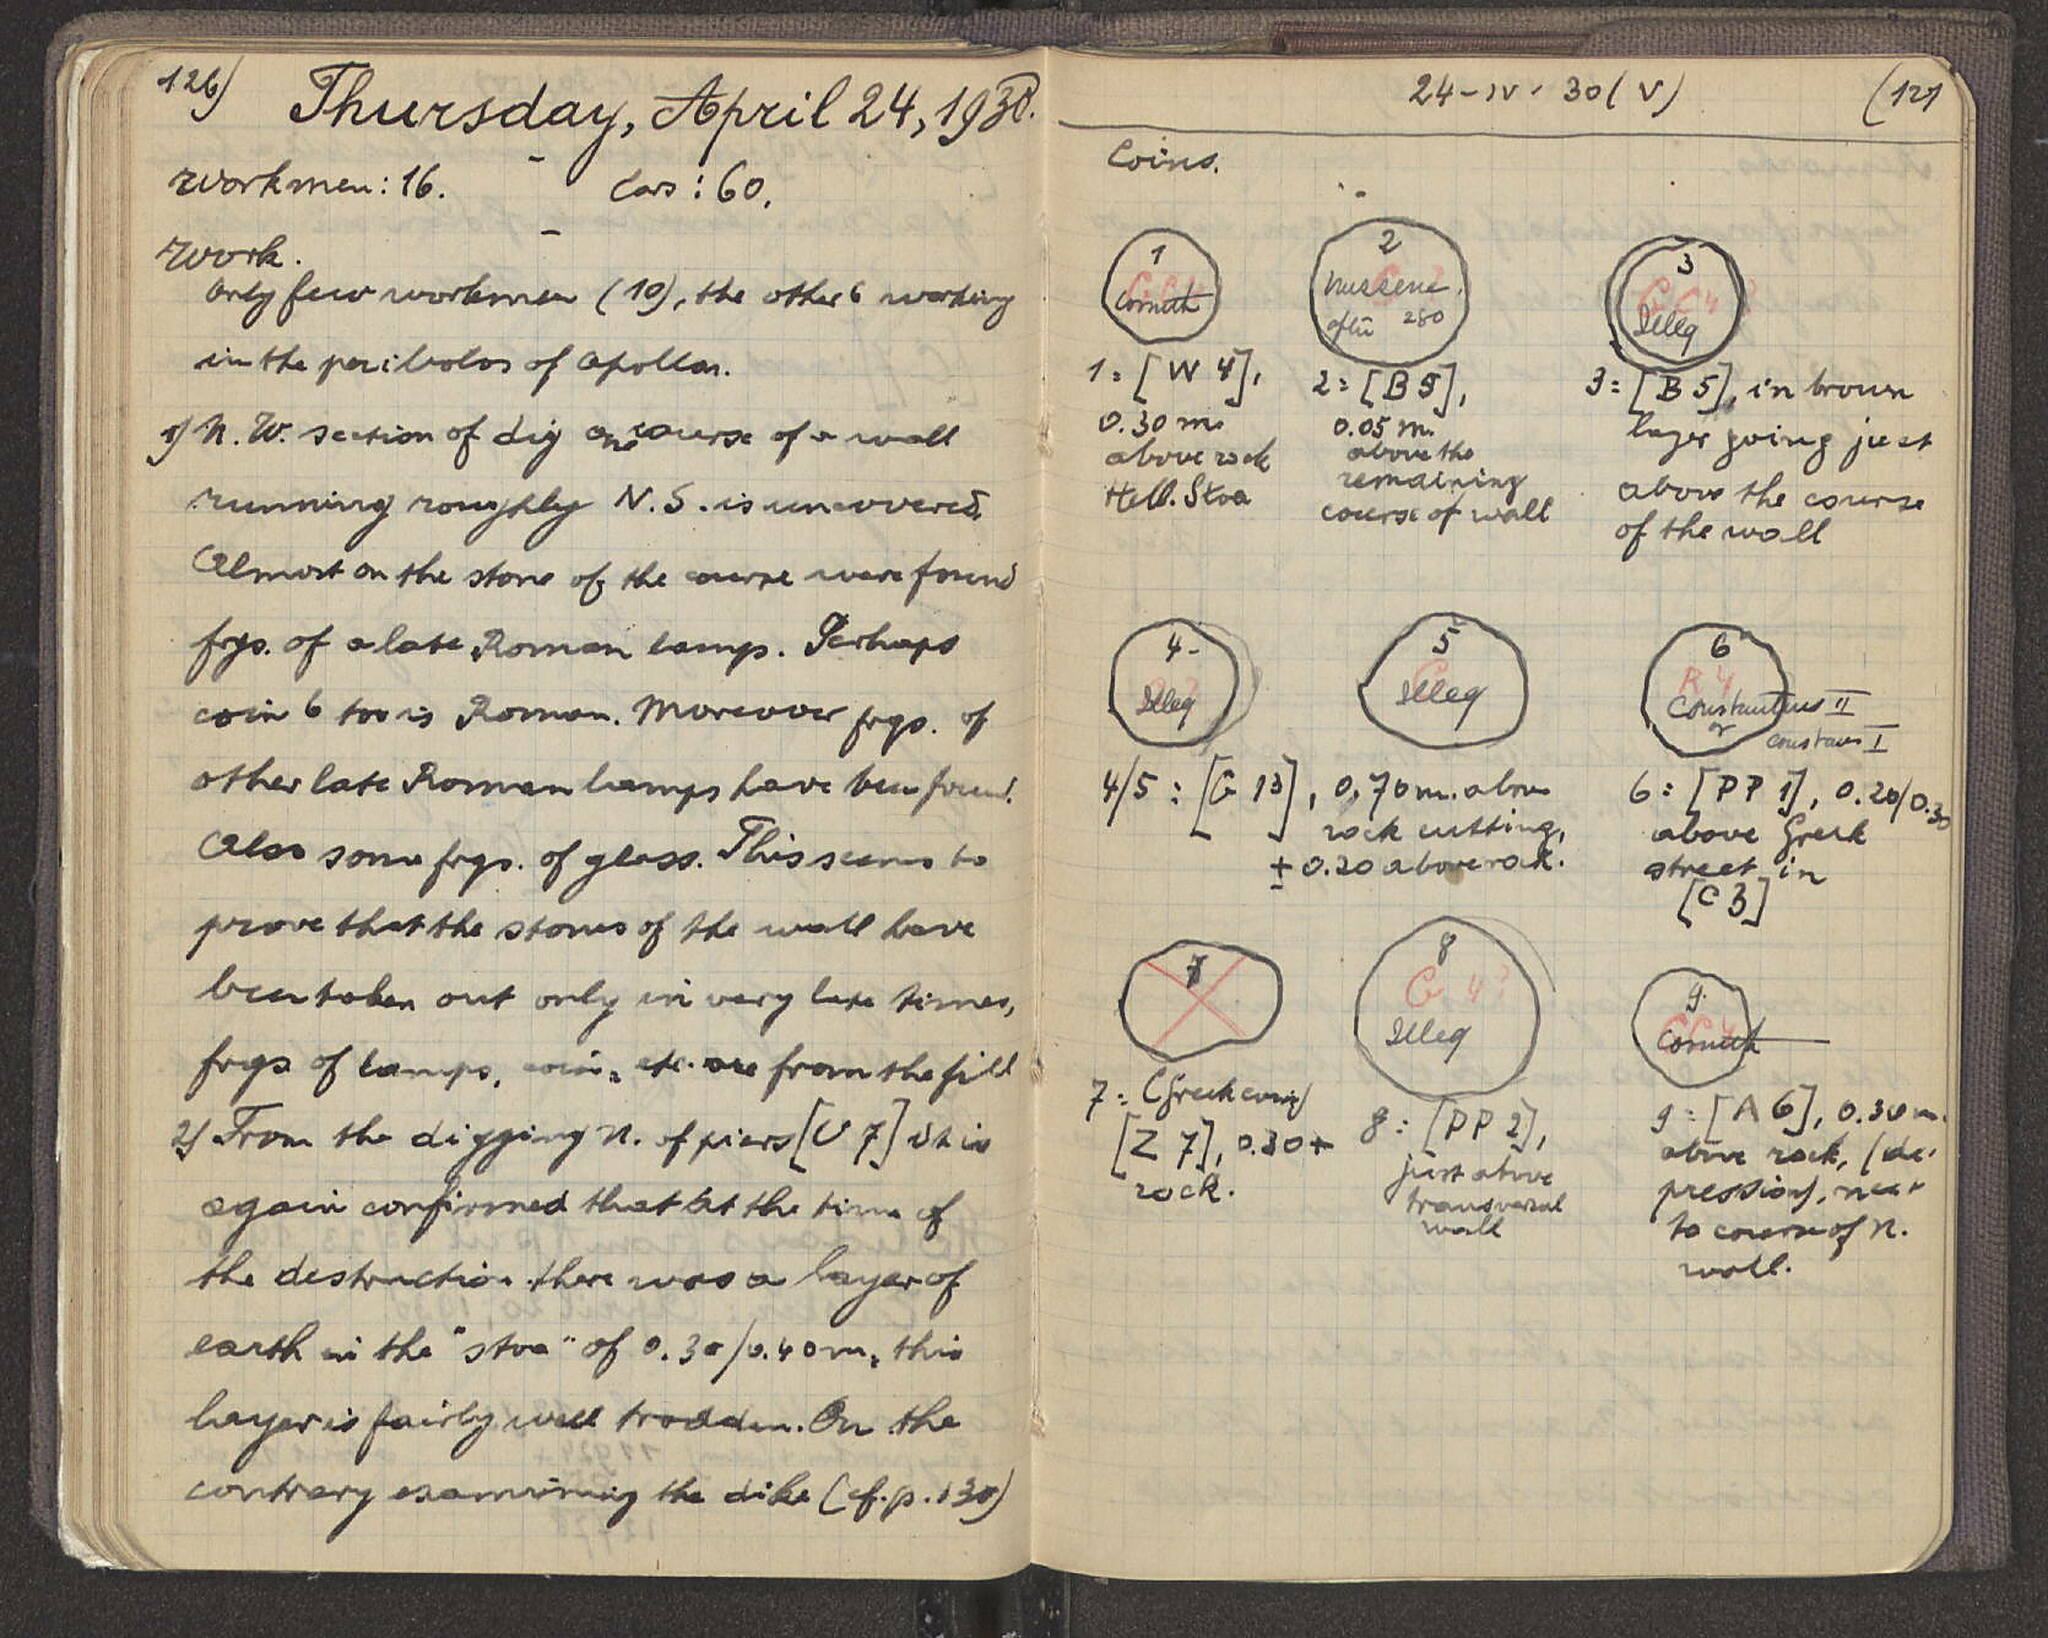 126)
Thursday, April 24, 1930.
Workmen: 16. Cars: 60.
Work.
Only few workmen (10), the other 6 working
in the peribolos of Apollon.
1) N. W. section of dig one course of a wall
running roughly N. S. is uncovered.
Almost on the stone of the course were found
frgs. of a late Roman lamp. Perhaps
coin 6 too is Roman. Moreover frgs. of
other late Roman lamps have been found.
Also some frgs. of glass. This seems to
prove that the stones of the wall have
been taken out only in very late times,
frgs of lamps, coin, etc. are from the fill
2) From the digging N. of piers [U 7] it is
again confirmed that at the time of
the destruction there was a layer of
earth in the "stoa" of 0.30/0.40 m, this
layer is fairly well trodden. On the
contrary examining the dike (cf. p. 130)
24-IV-30 (V) (127
Coins.
1
Corinth
1: [W 4],
0.30 m.
above rock
Hell. Stoa
2
Messene.
after 280
2: [B 5],
0.05 m.
above the
remaining
course of wall
3
Illeg
3: [B 5], in brown
layer going just
above the course
of the wall
4
Illeg
5
G
Illeg
4/5: [G 13], 0,70 m. above
rock cutting,
± 0.20 above rock.
6
R 4
Constantius II
or
Constans I
6: [PP 1], 0.20/0.30
above Greek
street in
[C 3]
7
7: (Greek coin)
[Z 7], 0.30 +
rock.
8
G 4?
Illeg
8: [PP 2],
just above
transversal
wall
9
Corinth
9: [A 6], 0.30 m.
above rock, (de-
pression), next
to course of N.
wall.